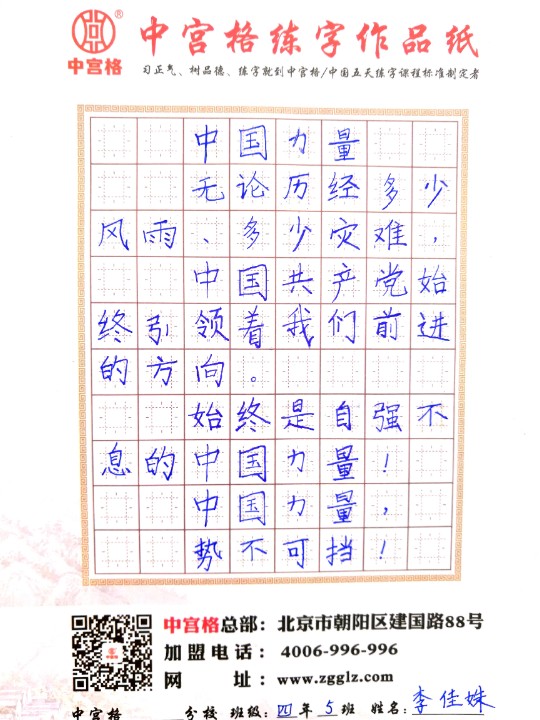 中宫格练字作品纸
中宫格
习正气、树品德、练字就到中宫格/中国五天练字课程标准制定者
中国力量
无论历经多少
风雨、多少灾难，
中国共产党始
终引领着我们前进
的方向。
始终是自强不
息的中国力量！
中国力量，
势不可挡！
中宫格总部：北京市朝阳区建国路88号
加盟电话：4006-996-996
网址：www.zgglz.com
中宫格 分校 班级：四年5班 姓名：李佳姝